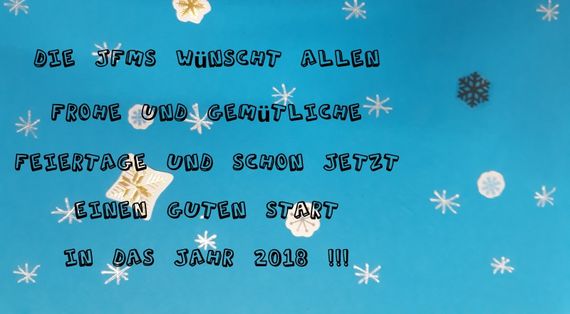 DIE JFMS WÜNSCHT ALLEN
FROHE UND GEMÜTLICHE
FEIERTAGE UND SCHON JETZT
EINEN GUTEN START
IN DAS JAHR 2018 !!!